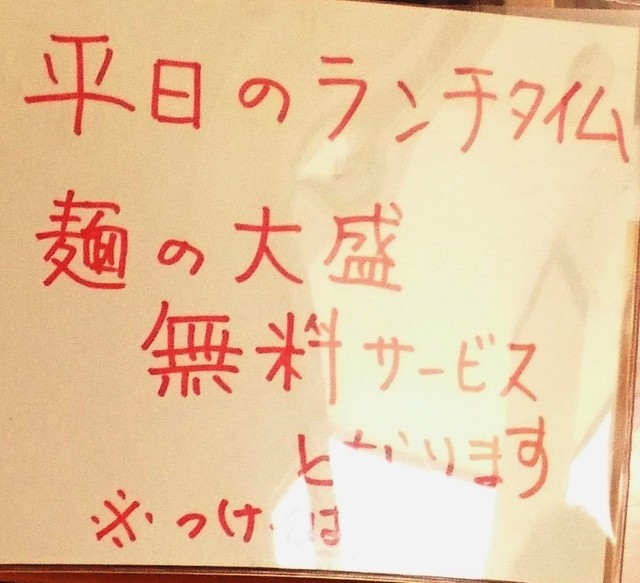 平日のランチタイム
麺の大盛
無料サービス
となります
※つけ